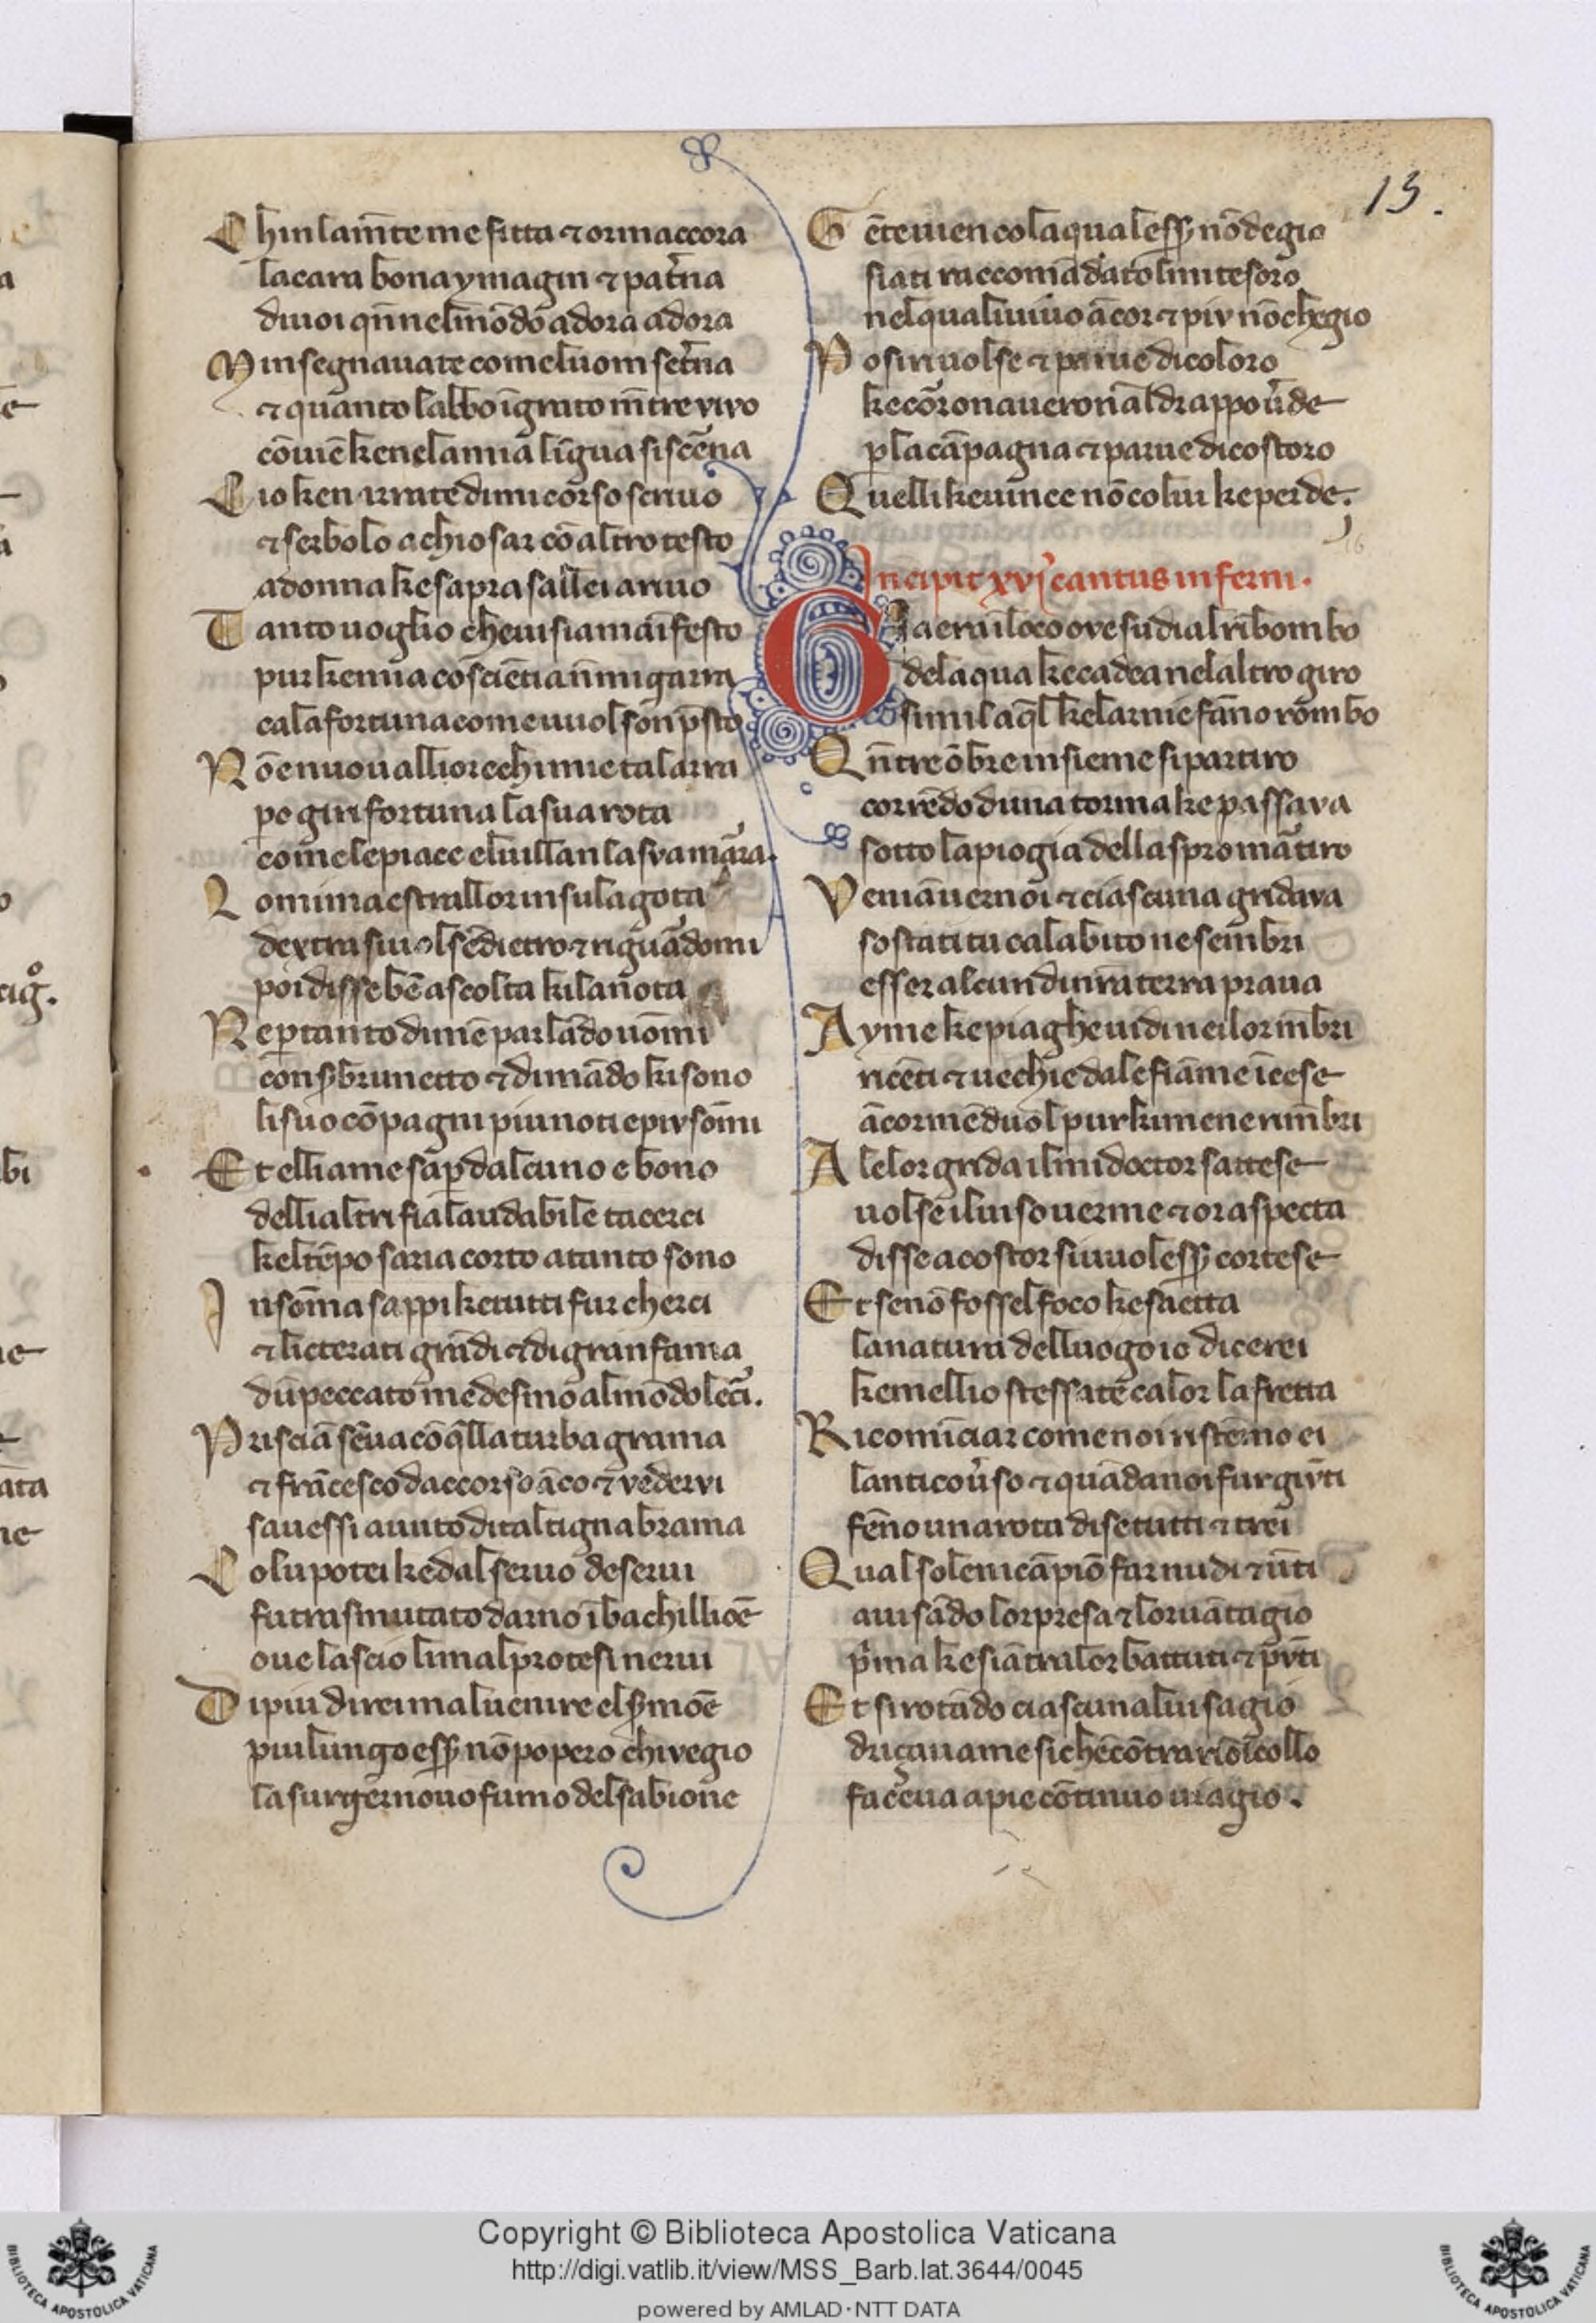 13.
Chin lam̄te me fitta ⁊ orm accora
la cara bona ymagin ⁊ pat̄na
di uoi qn̄ nel mōdo adora adora
Minsegnauate come luom set̄na
⁊ quanto labbo ī grato m̄tre vivo
cōuiē ke nela mia līgua si scēna
Cio ke narrate di mi corso scriuo
⁊ serbolo a chiosar cō altro testo
a donna ke sapra salllei ariuo
Tanto uoglio che ui sia māifesto
pur ke mia cōsciētia nō mi garra
cala fortuna come uuol son p̄sto
Nō e nuou alli orechi mie tal arra
po giri fortuna la sua rota
come le piace el uillan la sva mara.
Lo mi maestr allor in su la gota
dextra si uolse dietro ⁊ riguādomi
poi disse bē ascolta ki la nota
Ne per tanto di mē parlādo uōmi
con ser brunetto ⁊ dimādo ki sono
li suo cōpagni piu noti e piv sōmi
Et elli a me sap̄ dalcuno e bono
delli altri fia laudabile tacerci
kel tēpo saria corto a tanto sono
In sōma sappi ke tutti fur cherci
⁊ licterati grādi ⁊ di gran fama
dū peccato medesmo al mōdo lerci.
Prisciā sen̄ua cō q̄lla turba grama
⁊ frācesco daccorso āco ⁊ vedervi
sauessi auuto di tal tigna brama
Colu potei ke dal seruo de serui
fu trasmutato darno ī bachilliōe
oue lascio li mal protesi nerui
Di piu direi ma luenire el s̄mōe
piu lungo ess̄ nō po pero chi vegio
la surger nouo fumo del sabione
Gēte uien cola quale ess̄ nō degio
siati raccomādato lmi tesoro
nel qual i uiuo ācor ⁊ piv nō chegio
Po si riuolse ⁊ parue di coloro
ke corono a uerona l drappo v̄de
p̱ la cāpagna ⁊ parue di costoro
Quelli ke uince nō colui ke perde.
16
Incipit xvj cantus inferni.
Gia era ī loco ove sudia l ribombo
de laqua ke cadea nel altro giro
simil a q̄l ke larnie fāno rombo
Qn̄ tre ōbre insieme si partiro
corrēdo duna torma ke passava
sotto la piogia dellaspro mārtiro
Veniā uer noi ⁊ ciascuna gridava
sostati tu calabito ne sembri
esser alcun di nr̄a terra praua
Ayme ke piaghe uidi nei lor mēbri
ricēti ⁊ uechie dale fiāme īcese
ācor mē duol pur ki me ne rimēbri
A le lor grida il mi doctor sattese
uolse il uiso uer me ⁊ or aspecta
disse a costor si uuol ess̄ cortese
Et se nō fossel foco ke saetta
la natura del luogo io dicerei
ke mellio stess a te ca lor la fretta
Ricomīciar come noi ristēmo ei
lantico v̄so ⁊ quādo a noi fur givnti
fēno una rota di se tutti ⁊ trei
Qual solen i cāpiō far nudi ⁊ ūti
auisādo lor presa ⁊ lor uātagio
p̄ma ke sian tra lor battuti ⁊ pūti
Et si rotādo ciascun al uisagio
driçaua me si che cōtrario il collo
faceua a pie cōtinuo uiagio.
Copyright © Biblioteca Apostolica Vaticana
http://digi.vatlib.it/view/MSS_Barb.lat.3644/0045
powered by AMLAD·NTT DATA
BIBLIOTECA APOSTOLICA VATICANA
BIBLIOTECA APOSTOLICA VATICANA